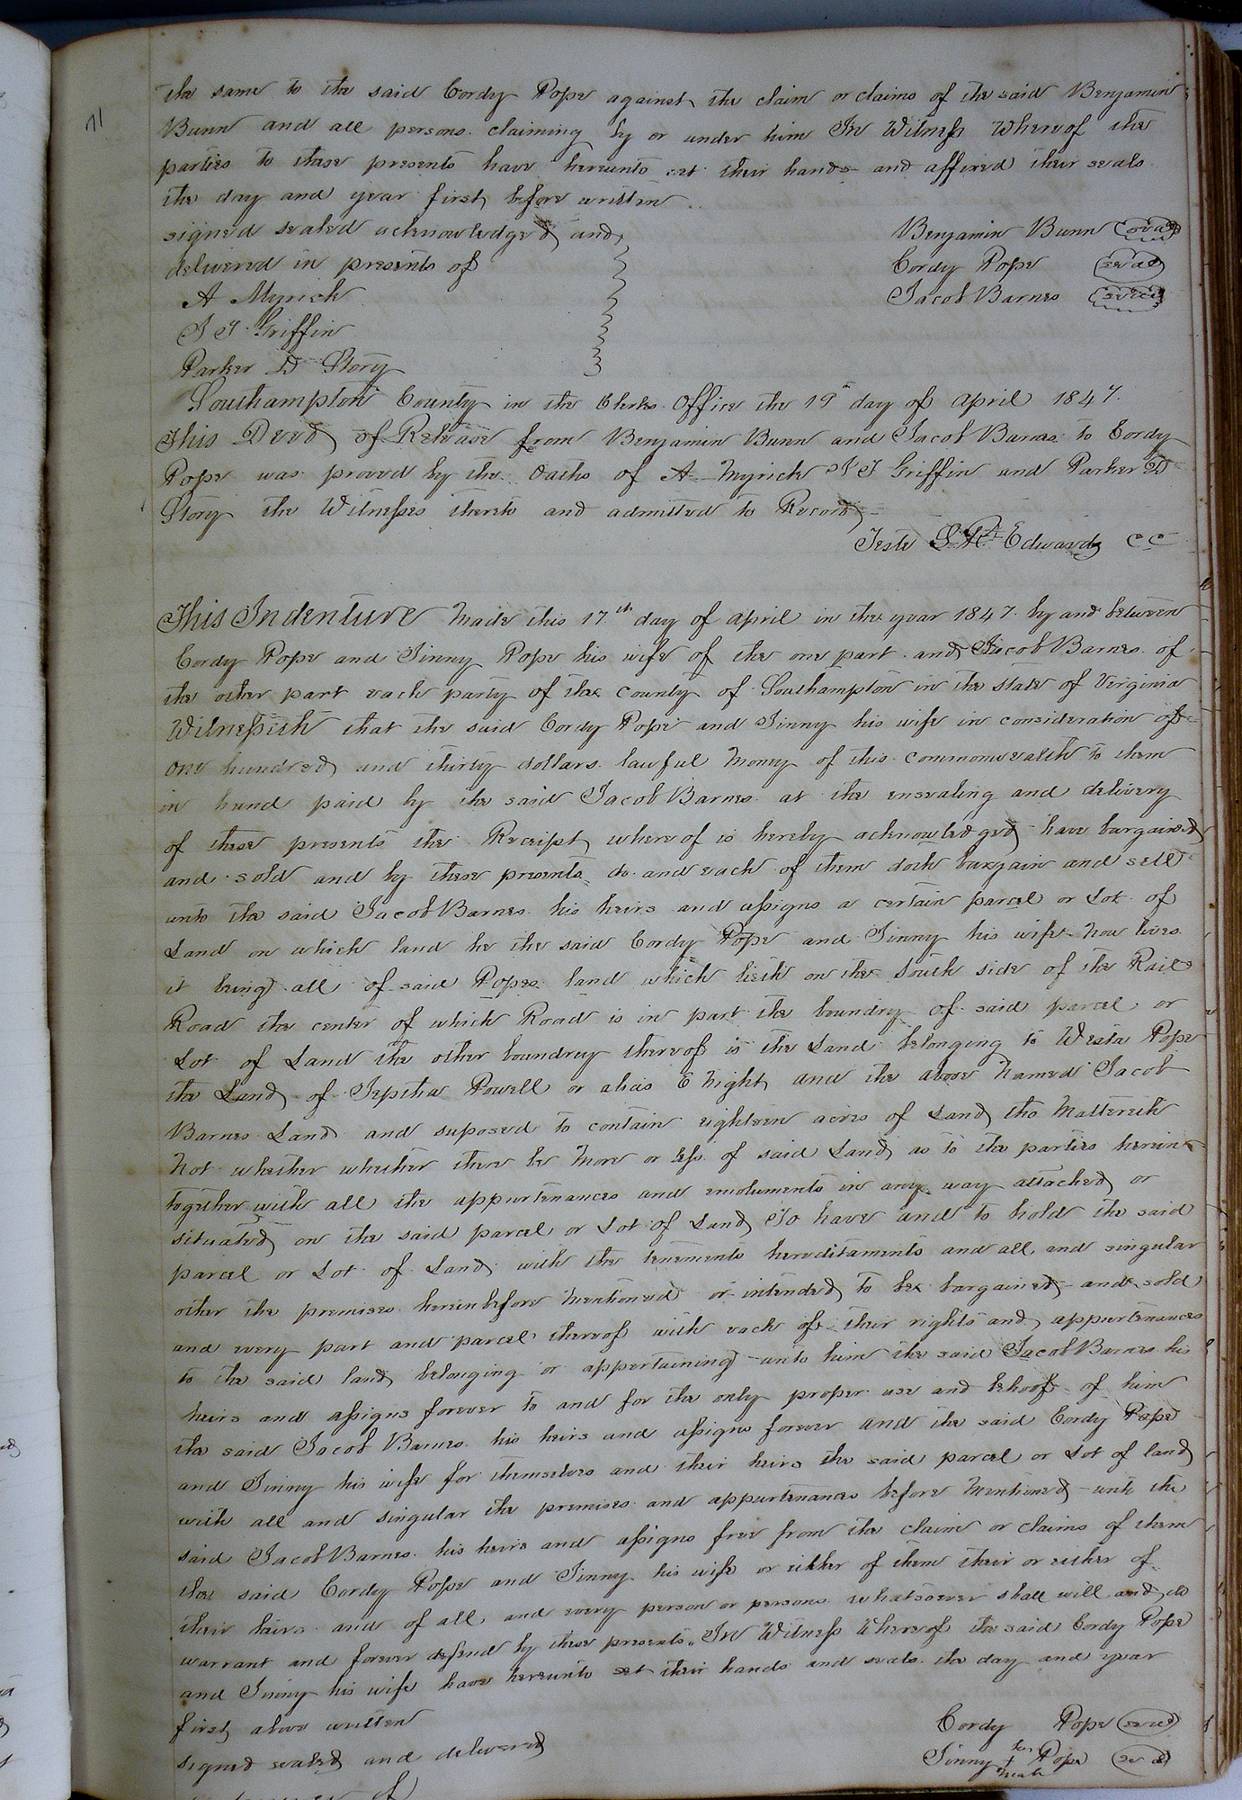 71
the same to the said Cordy Pope against the claim or claims of the said Benjamin
Bunn and all persons claiming by or under him In Witness Whereof the
parties to these presents have hereunto set their hands and affixed their seals
the day and year first before written
signed sealed acknowledged and
delivered in presents of
A Myrick
Griffin
Parker D Story
Benjamin Bunn seal
Cordy Pope seal
Jacob Barnes seal
Southampton County in the Clerks Office the 19th day of April 1847.
This Deed of Release from Benjamin Bunn and Jacob Barnes to Cordy
Pope was proved by the Oaths of A Myrick Griffin and Parker D
Story the Witnesses thereto and admitted to Record
Teste Edwards CC
This Indenture Made this 17th day of April in the year 1847 by and between
Cordy Pope and Jinny Pope his wife of the one part and Jacob Barnes of
the other part each party of the county of Southampton in the state of Virginia
Witnesseth that the said Cordy Pope and Jinny his wife in consideration of
one hundred and thirty dollars lawful money of this commonwealth to them
in hand paid by the said Jacob Barnes at the ensealing and delivery
of these presents the Receipt whereof is hereby acknowledged have bargained
and sold and by these presents do and each of them doth bargain and sell
unto the said Jacob Barnes his heirs and assigns a certain parcel or Lot of
Land on which land he the said Cordy Pope and Jinny his wife now lives
it being all of said Popes land which lieth on the South side of the Rail
Road the center of which Road is in part the boundry of said parcel or
Lot of Land the other boundry thereof is the Land belonging to Pope
the Land of Jeptha Powell or alias and the above Named Jacob
Barnes Land and suposed to contain eighteen acres of Land tho Mattereth
Not whether whether there be More or less of said Land as to the parties herein
together with all the appurtenances and emoluments in any way attached or
situated on the said parcel or Lot of Land To have and to hold the said
parcel or Lot of Land with the tenements hereditaments and all and singular
other the premises hereinbefore mentioned or intended to be bargained and sold
and every part and parcel thereof with each of their rights and appurtenances
to the said land belonging or appertaining unto him the said Jacob Barnes his
heirs and assigns forever to and for the only proper use and behoof of him
the said Jacob Barnes his heirs and assigns forever and the said Cordy Pope
and Jinny his wife for themselves and their heirs the said parcel or Lot of land
with all and singular the premises and appurtenances before Mentioned unto the
said Jacob Barnes his heirs and assigns free from the claim or claims of them
the said Cordy Pope and Jinny his wife or either of them their or either of
their heirs and of all and every person or persons whatsoever shall will and do
warrant and forever defend by these presents. In Witness Whereof the said Cordy Pope
and Jinny his wife have hereunto set their hands and seals the day and year
first above written
signed sealed and delivered
Cordy Pope seal
Jinny her + mark Pope seal